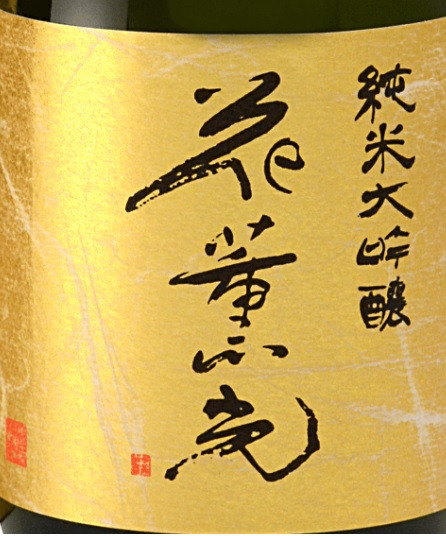 純米大吟醸
花薫光